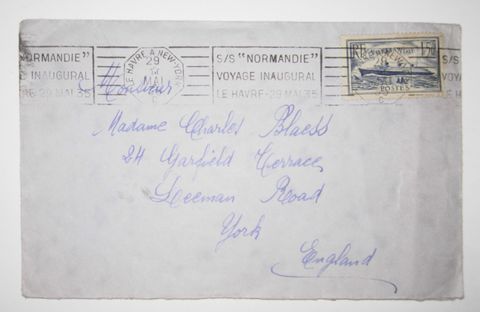 "NORMANDIE"
E INAUGURAL
RE-29 MAI 35
LE HAVRE A NEW-YORK
29
MAI
S/S "NORMANDIE"
VOYAGE INAUGURAL
LE HAVRE-29 MAI 35
RF NORMANDIE 1F50
POSTES
S/S
VOYA
LE H
Monsieur
Madame Charles Blaess
24 Garfield Terrace
Leeman Road
York
England